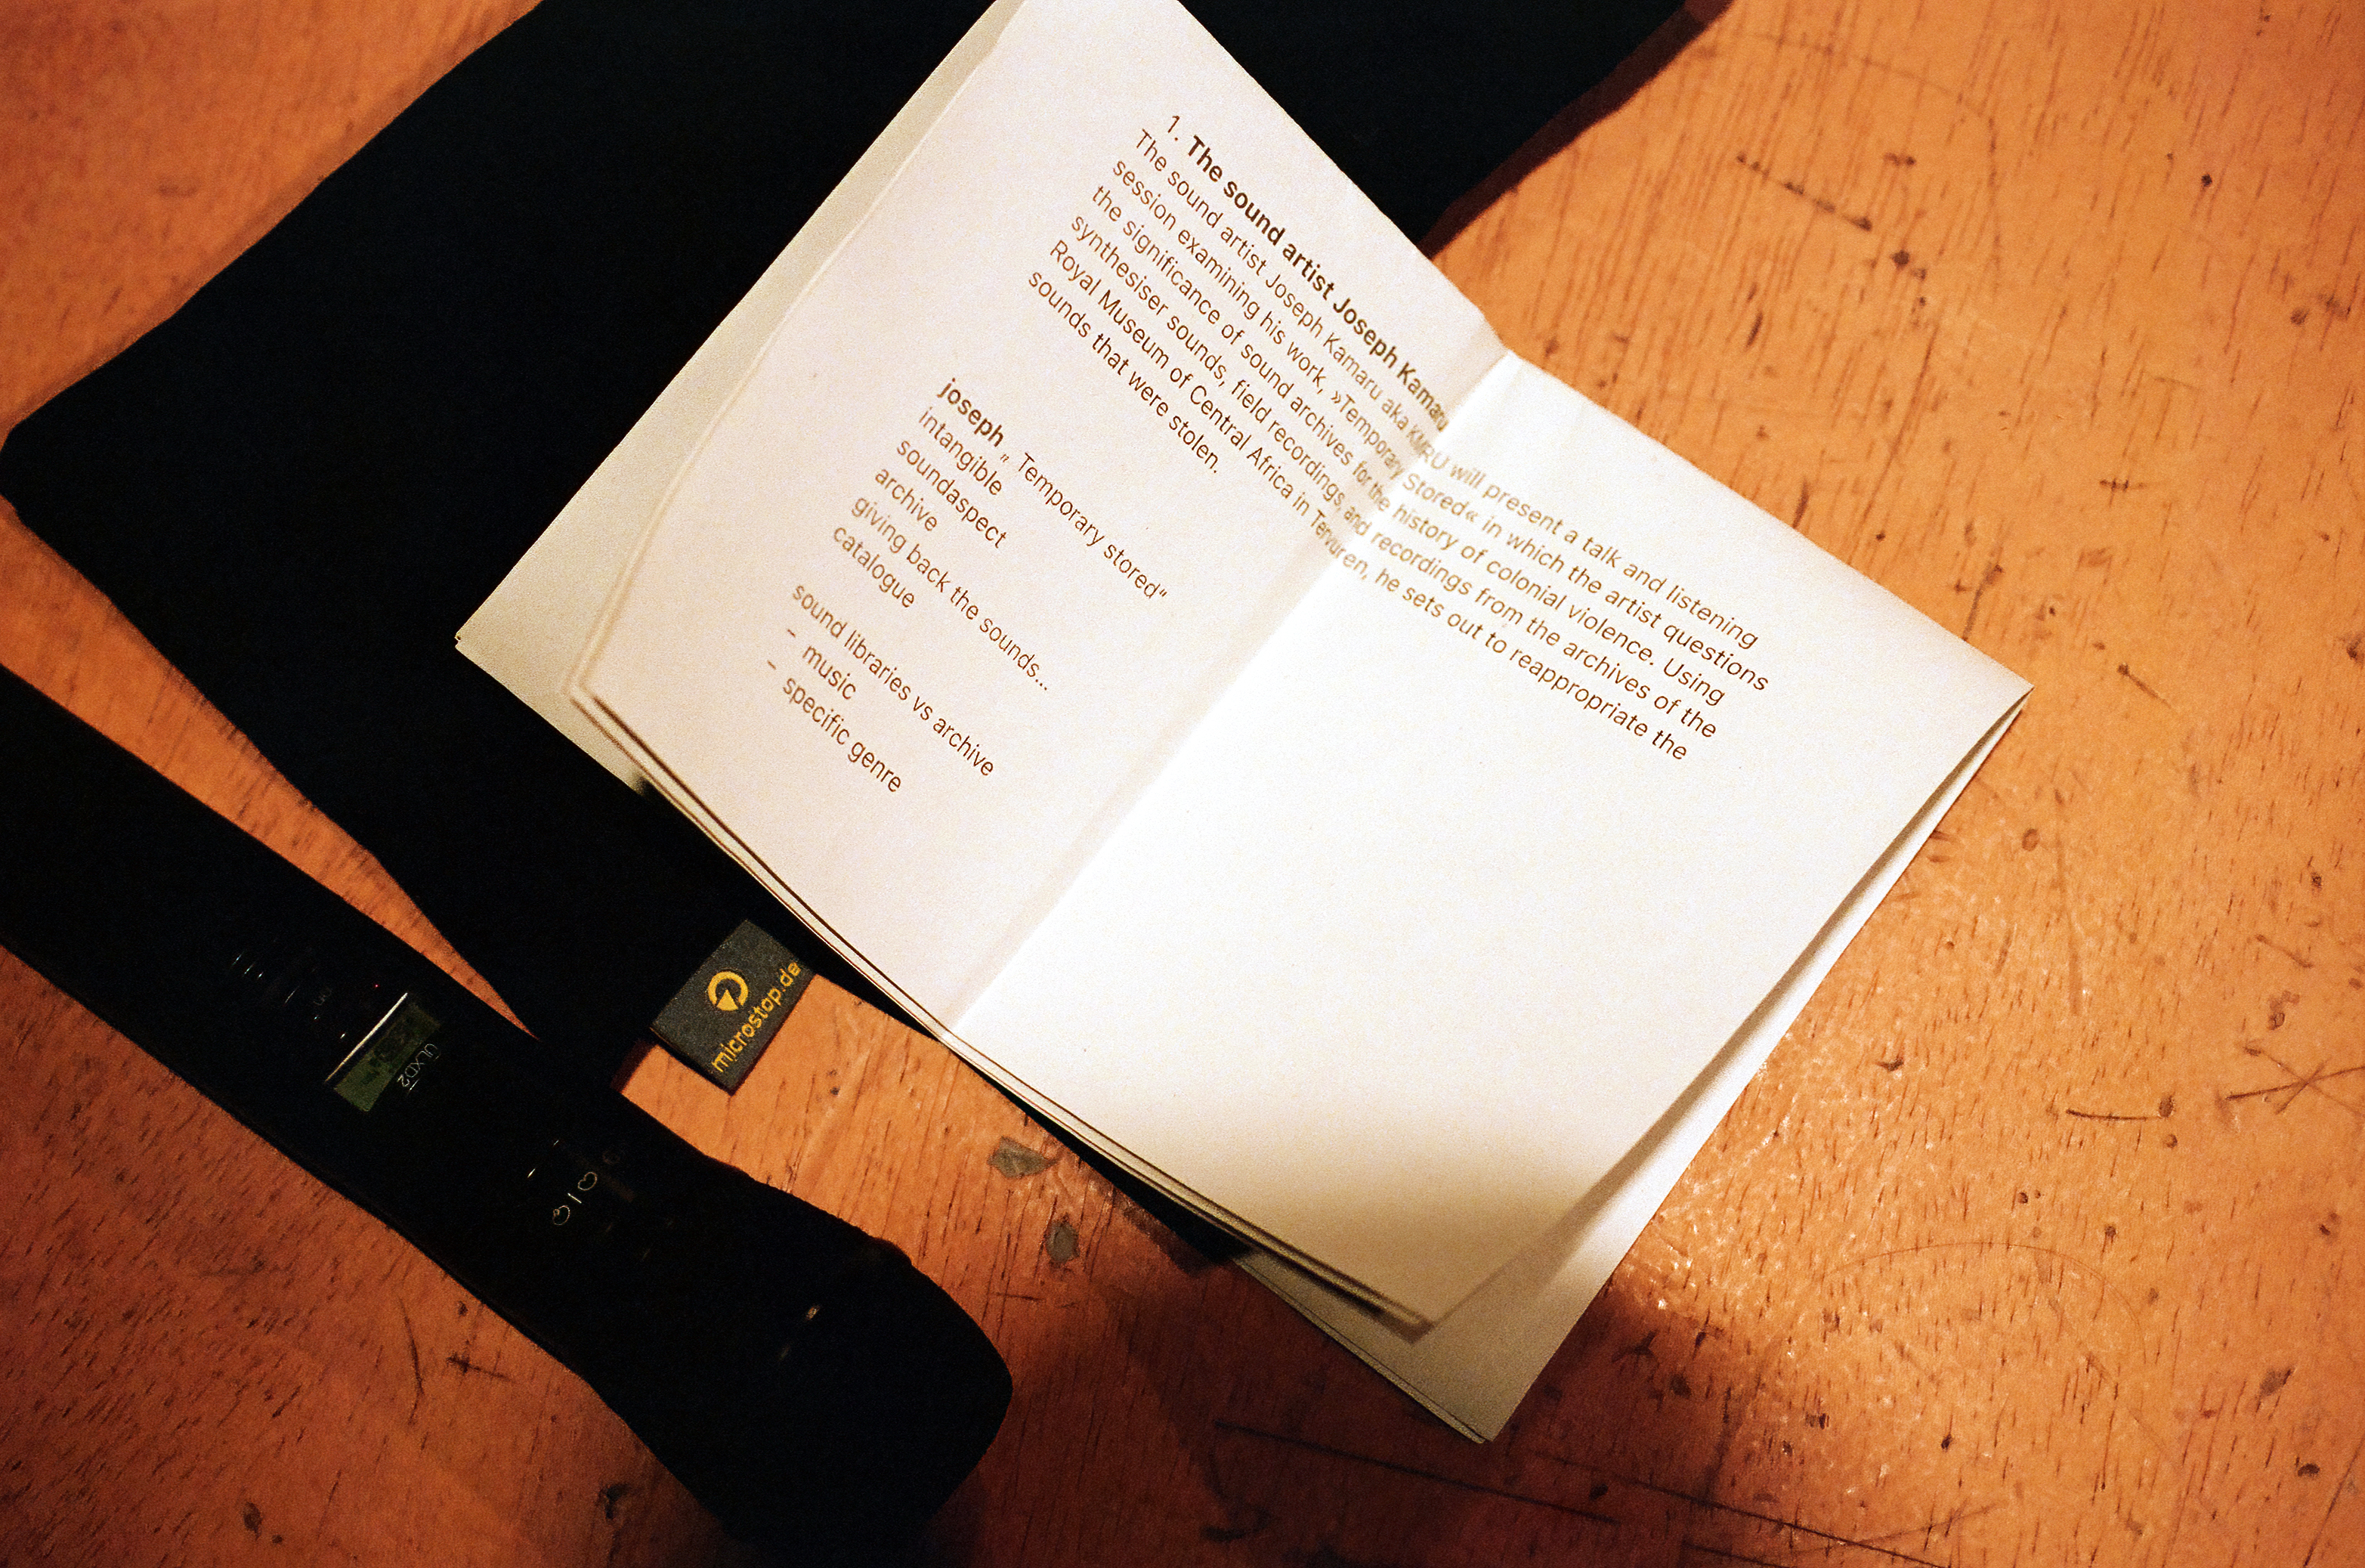 1. The sound artist Joseph Kamaru
The sound artist Joseph Kamaru aka KMRU will present a talk and listening
session examining his work, »Temporary Stored« in which the artist questions
the significance of sound archives for the history of colonial violence. Using
synthesiser sounds, field recordings, and recordings from the archives of the
Royal Museum of Central Africa in Tervuren, he sets out to reappropriate the
sounds that were stolen.
joseph „ Temporary stored"
intangible
soundaspect
archive
giving back the sounds...
catalogue
sound libraries vs archive
– music
– specific genre
microstop.de
ULXD2